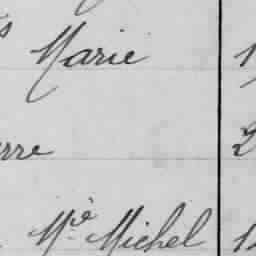 Marie
rre 2
Mie Michel